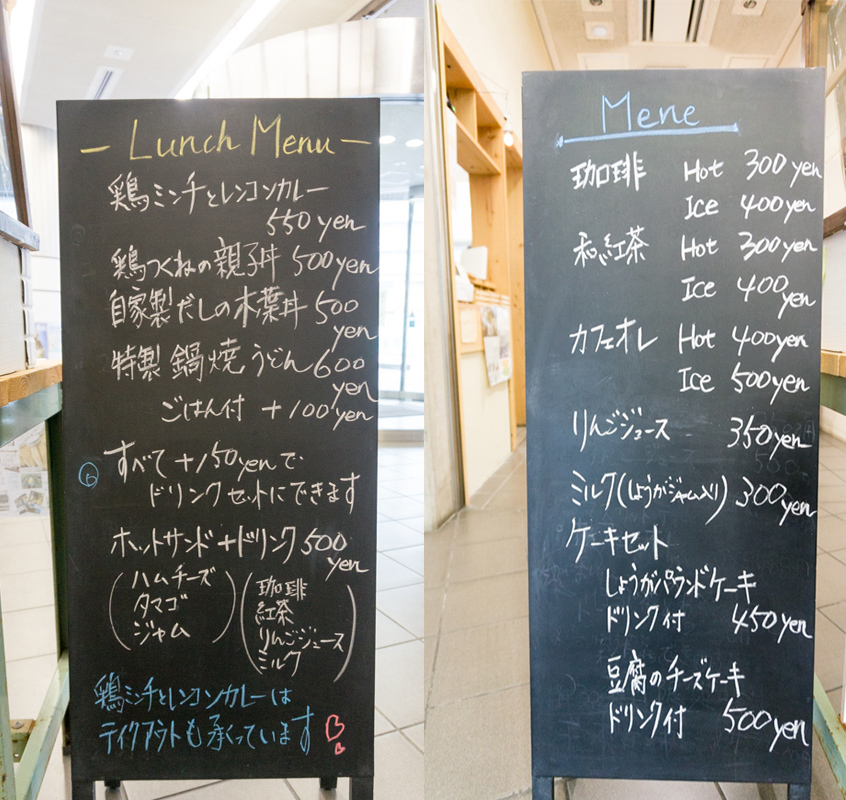 - Lunch Menu -
鶏ミンチとレンコンカレー
550 yen
鶏つくねの親子丼 500yen
自家製だしの木葉丼 500
yen
特製鍋焼うどん 600
yen
ごはん付 +100yen
すべて+150yenで
ドリンクセットにできます
ホットサンド+ドリンク 500
yen
(ハムチーズ
タマゴ
ジャム)
(珈琲
紅茶
りんごジュース
ミルク)
鶏ミンチとレンコンカレーは
テイクアウトも承っています
Mene
珈琲 Hot 300yen
Ice 400yen
和紅茶 Hot 300yen
Ice 400
yen
カフェオレ Hot 400yen
Ice 500yen
りんごジュース 350yen
ミルク(しょうがジャム入り) 300
yen
ケーキセット
しょうがパウンドケーキ
ドリンク付 450yen
豆腐のチーズケーキ
ドリンク付 500yen